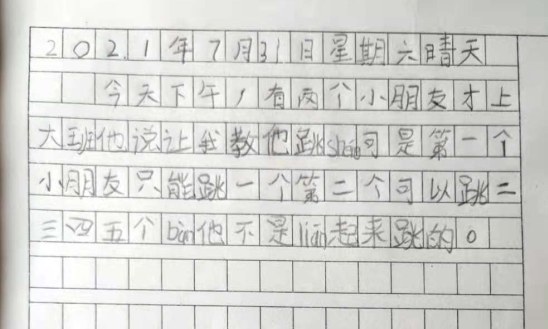 2021年7月31日星期六晴天
今天下午，有两个小朋友才上
大班他说让我教他跳shén可是第一个
小朋友只能跳一个第二个可以跳二
三四五个bàn他不是lián起来跳的。